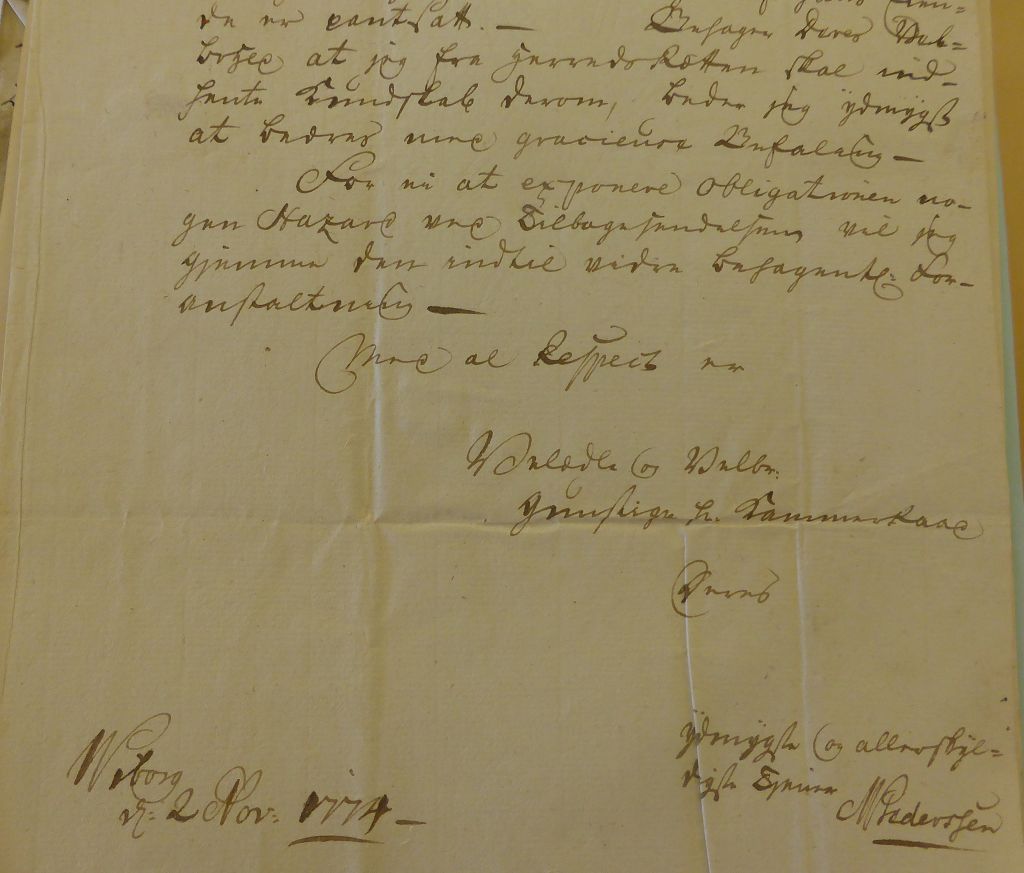 de er pantsatt. — Behager Deres Vel=
brhed at jeg fra HerredsRætten skal ind=
hente Kundskab derom, beder jeg ydmygst
at beæres med gracieuse Befaling —
For ei at exponere Obligationen no=
gen Hazard ved Tilbagesendelsen, vil jeg
gjemme den indtil vidre behagentl: For=
anstaltning —
Med al Respect er
Velædle og Velbr:
Gunstige Hr. Kammerraad
Deres
ydmygste og allerskyl=
digste Tjener
Wiborg
d: 2 Nov: 1774 —
MPederssen